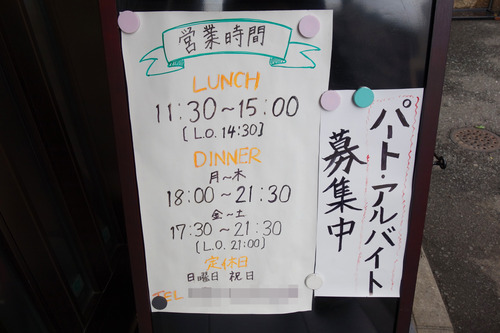 営業時間
LUNCH
11:30～15:00
[L.O. 14:30]
DINNER
月～木
18:00～21:30
金～土
17:30～21:30
(L.O. 21:00)
定休日
日曜日 祝日
TEL
パート・アルバイト
募集中